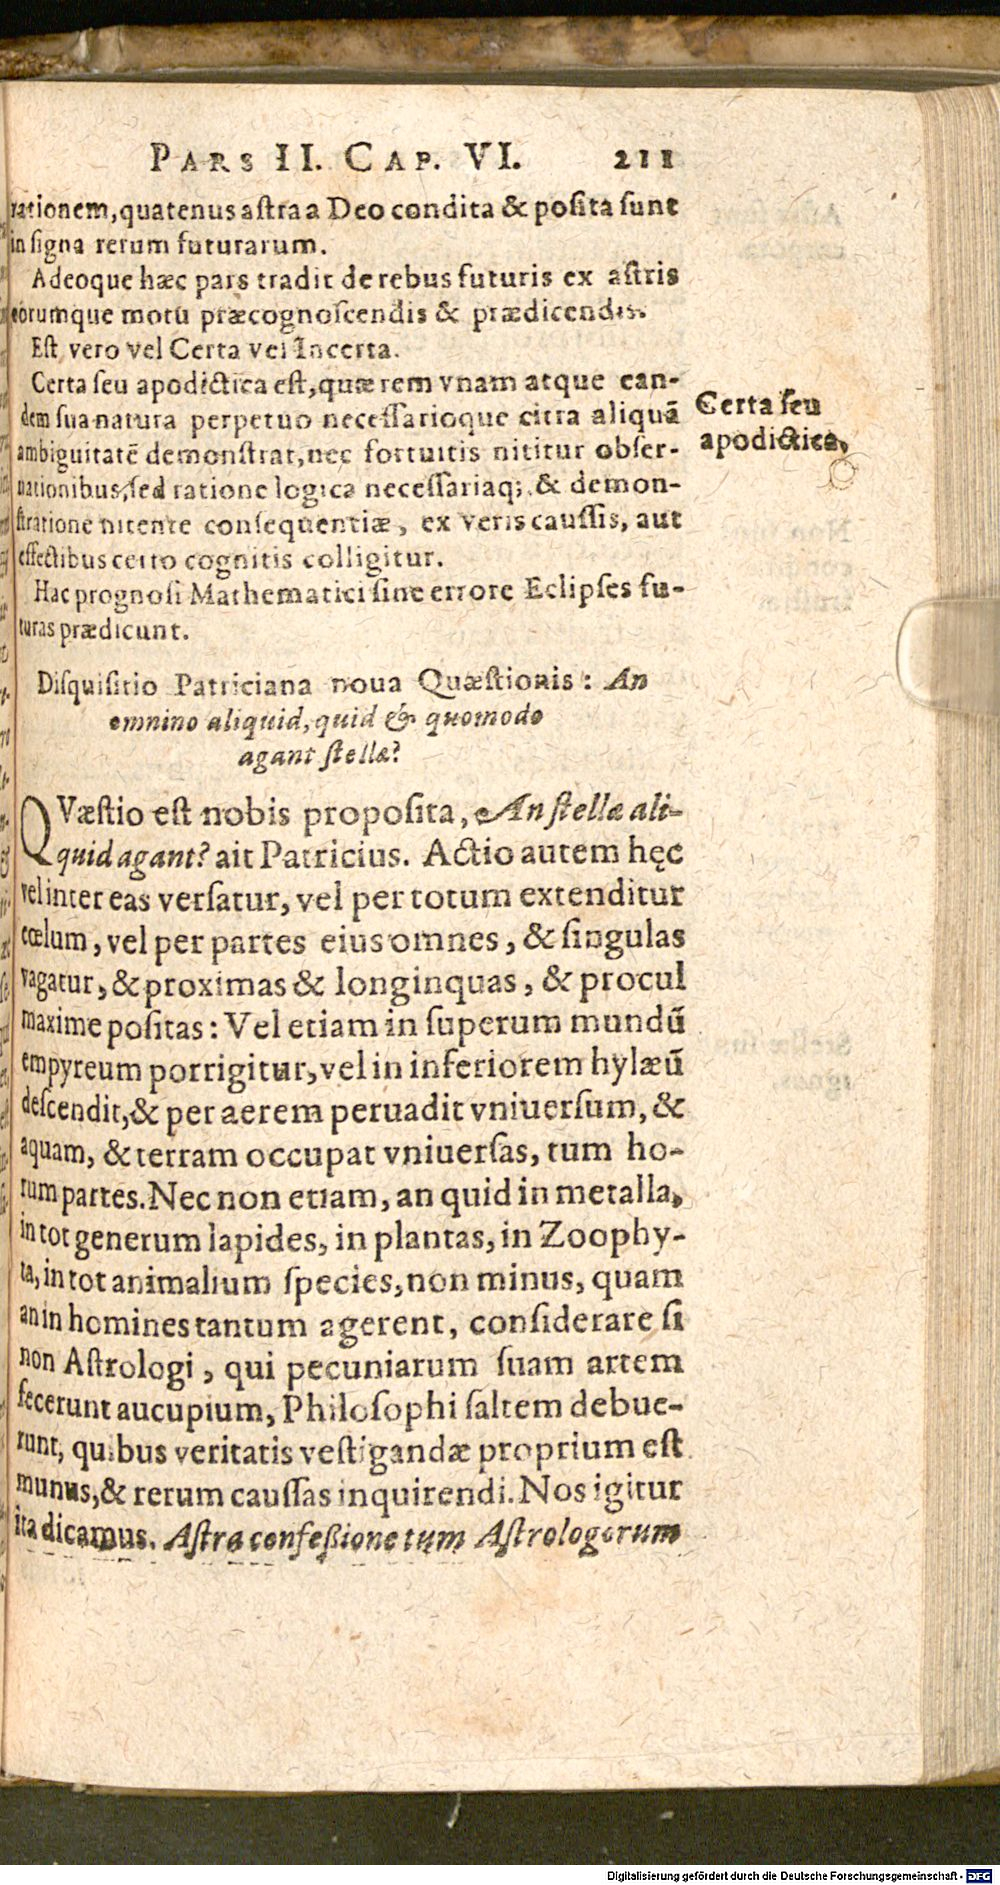 PARS II. CAP. VI. 211
rationem, quatenus astra a Deo condita & posita sunt
in signa rerum futurarum.
Adeoque hæc pars tradit de rebus futuris ex astris
eorumque motu præcognoscendis & prædicendis.
Est vero vel Certa vel Incerta.
Certa seu apodictica est, quæ rem vnam atque ean-
dem sua natura perpetuo necessarioque citra aliquā
ambiguitatē demonstrat, nec fortuitis nititur obser-
uationibus, sed ratione logica necessariaq; & demon-
stratione nitente consequentiæ, ex veris caussis, aut
effectibus certo cognitis colligitur.
Hac prognosi Mathematici sine errore Eclipses fu-
turas prædicunt.
Certa seu
apodictica,
Disquisitio Patriciana noua Quæstionis: An
omnino aliquid, quid & quomodo
agant stellæ?
QVæstio est nobis proposita, An stellæ ali-
quid agant? ait Patricius. Actio autem hęc
vel inter eas versatur, vel per totum extenditur
cœlum, vel per partes eius omnes, & singulas
vagatur, & proximas & longinquas, & procul
maxime positas: Vel etiam in superum mundū
empyreum porrigitur, vel in inferiorem hylæū
descendit, & per aerem peruadit vniuersum, &
aquam, & terram occupat vniuersas, tum ho-
rum partes. Nec non etiam, an quid in metalla,
in tot generum lapides, in plantas, in Zoophy-
ta, in tot animalium species, non minus, quam
an in homines tantum agerent, considerare si
non Astrologi, qui pecuniarum suam artem
fecerunt aucupium, Philosophi saltem debue-
runt, quibus veritatis vestigandæ proprium est
munus, & rerum caussas inquirendi. Nos igitur
ita dicamus. Astra confeßione tum Astrologorum
Digitalisierung gefördert durch die Deutsche Forschungsgemeinschaft - DFG